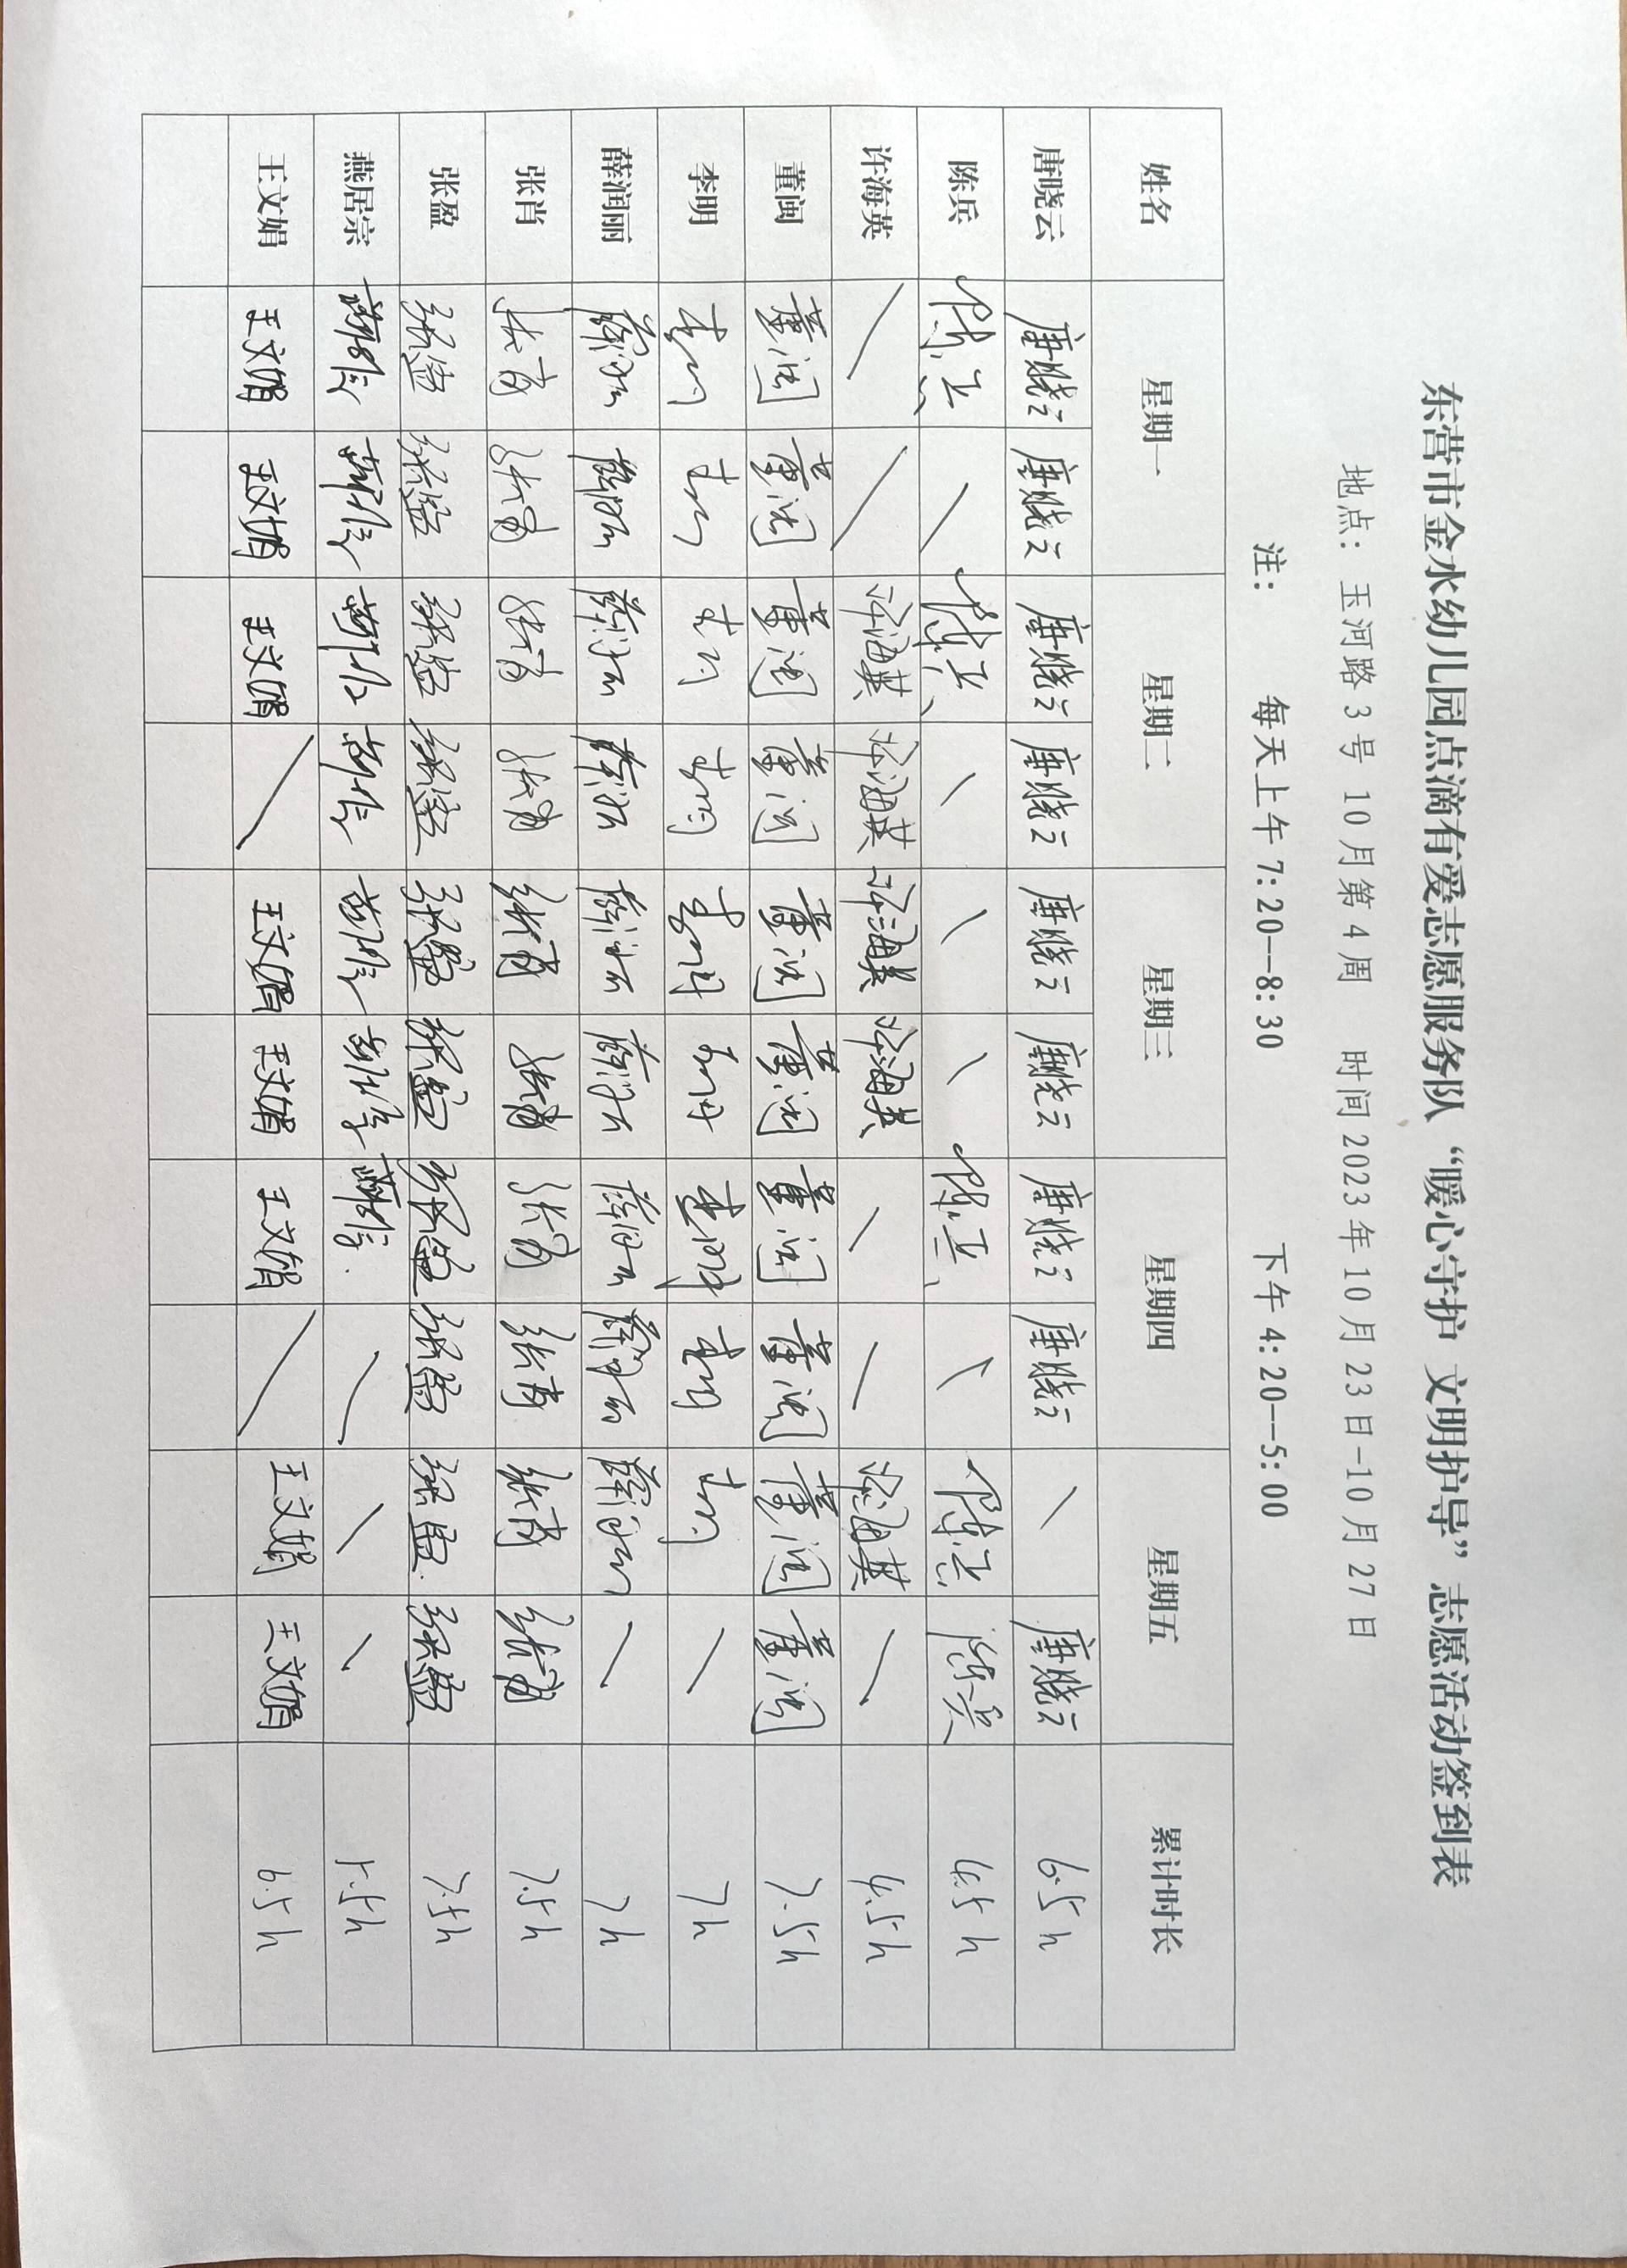 东营市金水幼儿园点滴有爱志愿服务队“暖心守护 文明护导”志愿活动签到表
地点：玉河路 3 号 10 月第 4 周 时间 2023 年 10 月 23 日-10 月 27 日
注： 每天上午 7:20—8:30 下午 4:20—5:00
姓名 星期一 星期二 星期三 星期四 星期五 累计时长
唐晓云 唐晓云 唐晓云 唐晓云 唐晓云 唐晓云 唐晓云 唐晓云 唐晓云 \ 唐晓云 6.5h
陈兵 陈兵 \ 陈兵 \ \ \ 陈兵 \ 陈兵 陈兵 4.5h
许海英 \ \ 许海英 许海英 许海英 许海英 \ \ 许海英 \ 4.5h
董闽 董闽 董闽 董闽 董闽 董闽 董闽 董闽 董闽 董闽 董闽 7.5h
李明 李明 李明 李明 李明 李明 李明 李明 李明 李明 \ 7h
薛润丽 薛润丽 薛润丽 薛润丽 薛润丽 薛润丽 薛润丽 薛润丽 薛润丽 薛润丽 \ 7h
张肖 张肖 张肖 张肖 张肖 张肖 张肖 张肖 张肖 张肖 张肖 7.5h
张盈 张盈 张盈 张盈 张盈 张盈 张盈 张盈 张盈 张盈 张盈 7.5h
燕居宗 燕居宗 燕居宗 燕居宗 燕居宗 燕居宗 燕居宗 燕居宗 \ \ \ 5.5h
王文娟 王文娟 王文娟 王文娟 \ 王文娟 王文娟 王文娟 \ 王文娟 王文娟 6.5h